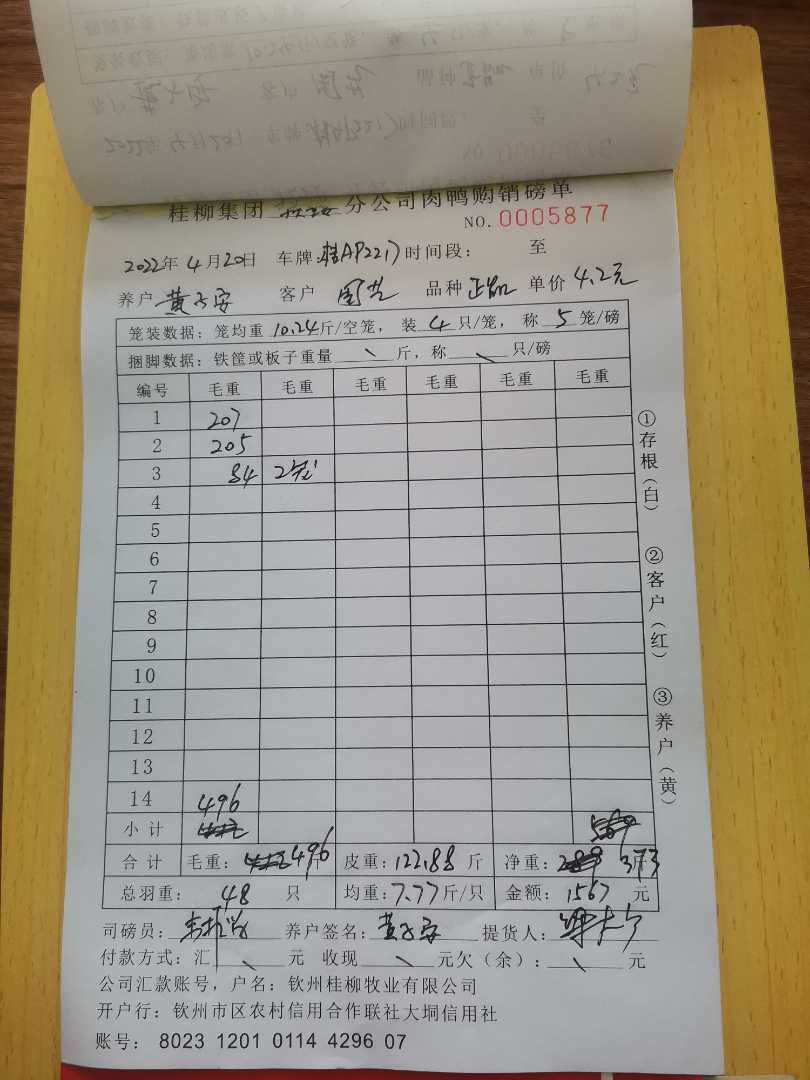 桂柳集团 分公司肉鸭购销磅单
NO. 0005877
2022年 4月20日 车牌:桂AP2217 时间段: 至
养户 黄子安 客户 品种 正品 单价 4.2元
笼装数据: 笼均重 10.24斤/空笼, 装 4 只/笼, 称 5 笼/磅
捆脚数据: 铁筐或板子重量 \ 斤, 称 \ 只/磅
编号 毛重 毛重 毛重 毛重 毛重 毛重
1 207
2 205
3 84 2笼
4
5
6
7
8
9
10
11
12
13
14 496
小计
合计 毛重: 496斤 皮重: 122.88 斤 净重: 373斤
总羽重: 48 只 均重: 7.77斤/只 金额: 1567 元
司磅员: 养户签名: 黄子安 提货人:
付款方式: 汇 \ 元 收现 \ 元欠(余): \ 元
公司汇款账号, 户名: 钦州桂柳牧业有限公司
开户行: 钦州市区农村信用合作联社大垌信用社
账号: 8023 1201 0114 4296 07
①存根(白)
②客户(红)
③养户(黄)